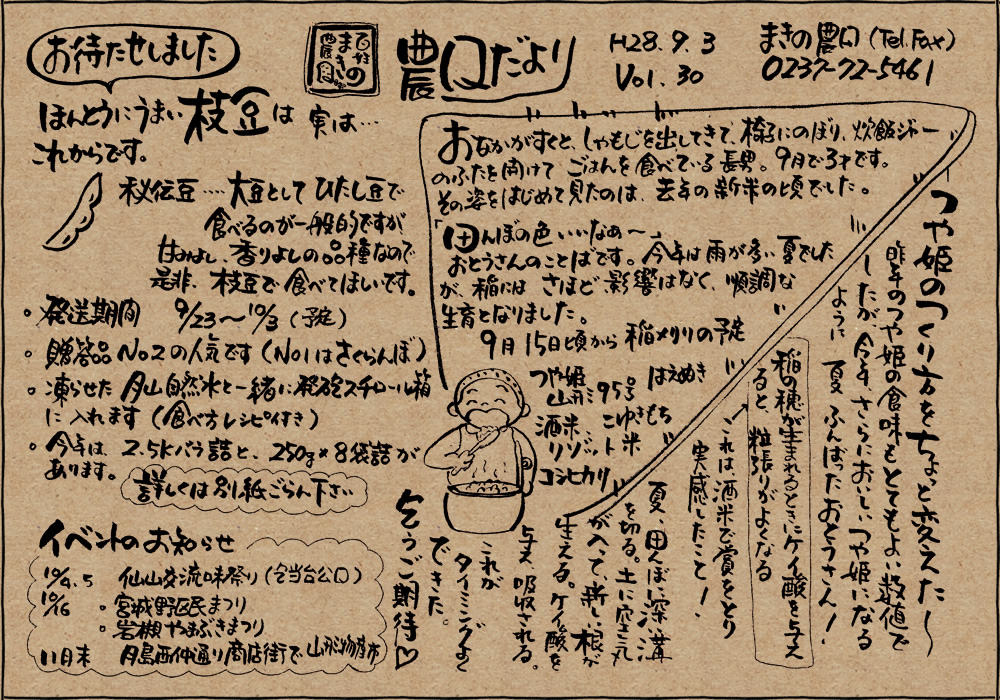 お待たせしました
百姓
まきの
農園
農園だより
H28.9.3
Vol.30
まきの農園(Tel.Fax)
0237-72-5461
ほんとうにうまい枝豆は 実は…
これからです。
秘伝豆…大豆として ひたし豆で
食べるのが一般的ですが
甘みよし、香りよしの品種なので
是非、枝豆で食べてほしいです。
・発送期間 9/23〜10/3(予定)
・贈答品 No2の人気です(No1はさくらんぼ)
・凍らせた 月山自然水と一緒に発砲スチロール箱
に入れます(食べ方レシピ付き)
・今年は、2.5kバラ詰と、250g×8袋詰が
あります。
詳しくは別紙ごらん下さい
イベントのお知らせ
10/4.5 仙山交流味祭り(勾当台公口)
10/16 ・宮城野区民まつり
・岩槻やまぶきまつり
11月末 月島西仲通り商店街で山形物産市
おなかがすくと、しゃもじを出してきて、椅子にのぼり、炊飯ジャー
のふたを開けて ごはんを食べている長男。9月で3才です。
その姿をはじめて見たのは、去年の新米の頃でした。
「田んぼの色いいなあ〜」
おとうさんのことばです。今年は雨が多い夏でした
が、稲には さほど影響はなく、順調な
生育となりました。
9月15日頃から 稲刈りの予定
つや姫 はえぬき
山形95号
酒米 こゆきもち
リゾット米
コシヒカリ
つや姫のつくり方をちょっと変えた〜
昨年のつや姫の食味もとてもよい数値で
したが、今年、さらにおいしいつや姫になる
ように 夏 ふんばったおとうさん!
稲の穂が生まれるときにケイ酸を与え
ると、粒張りがよくなる
これは酒米で賞をとり
実感したこと!
夏、田んぼに深い溝
を切る。土に空気
が入って、新しい根が
生える。ケイ酸を
与え 吸収される。
これが
タイミングよく
できた。
乞うご期待♡